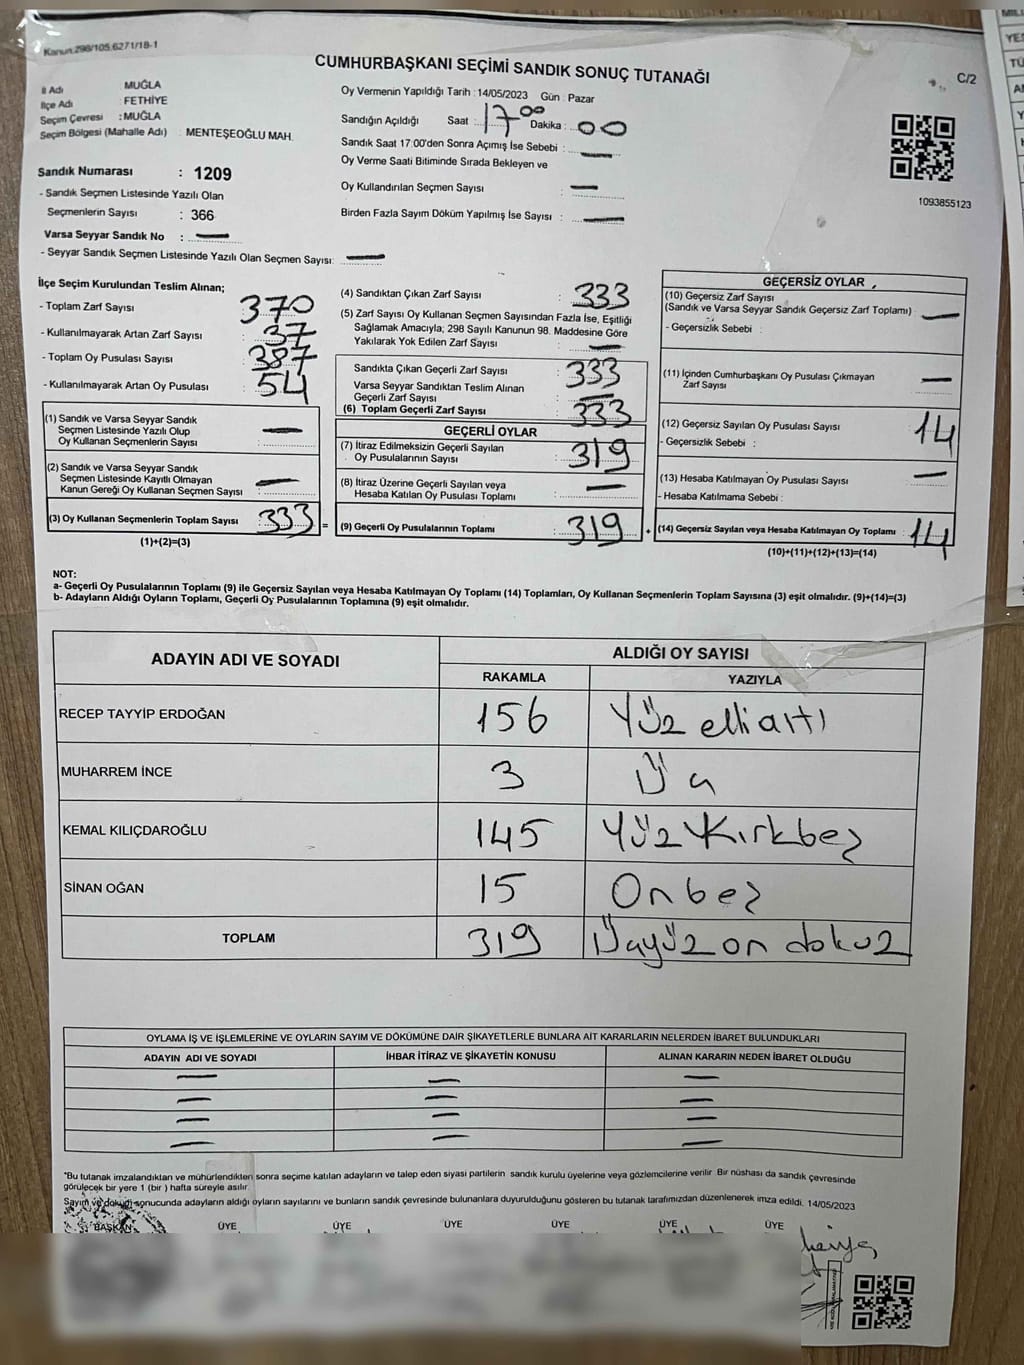 Kanun:298/105,6271/18-1
CUMHURBAŞKANI SEÇİMİ SANDIK SONUÇ TUTANAĞI
C/2
İl Adı MUĞLA
İlçe Adı : FETHİYE
Seçim Çevresi : MUĞLA
Seçim Bölgesi (Mahalle Adı) : MENTEŞEOĞLU MAH.
Sandık Numarası : 1209
- Sandık Seçmen Listesinde Yazılı Olan
Seçmenlerin Sayısı : 366
Varsa Seyyar Sandık No : —
- Seyyar Sandık Seçmen Listesinde Yazılı Olan Seçmen Sayısı: —
Oy Vermenin Yapıldığı Tarih : 14/05/2023 Gün : Pazar
Sandığın Açıldığı Saat : 17 00 Dakika : 00
Sandık Saat 17:00'den Sonra Açımış İse Sebebi : —
Oy Verme Saati Bitiminde Sırada Bekleyen ve
Oy Kullandırılan Seçmen Sayısı : —
Birden Fazla Sayım Döküm Yapılmış İse Sayısı : —
1093855123
İlçe Seçim Kurulundan Teslim Alınan;
- Toplam Zarf Sayısı : 370
- Kullanılmayarak Artan Zarf Sayısı : 37
- Toplam Oy Pusulası Sayısı : 387
- Kullanılmayarak Artan Oy Pusulası : 54
(1) Sandık ve Varsa Seyyar Sandık
Seçmen Listesinde Yazılı Olup
Oy Kullanan Seçmenlerin Sayısı : —
(2) Sandık ve Varsa Seyyar Sandık
Seçmen Listesinde Kayıtlı Olmayan
Kanun Gereği Oy Kullanan Seçmen Sayısı : —
(3) Oy Kullanan Seçmenlerin Toplam Sayısı : 333 =
(1)+(2)=(3)
(4) Sandıktan Çıkan Zarf Sayısı : 333
(5) Zarf Sayısı Oy Kullanan Seçmen Sayısından Fazla İse, Eşitliği
Sağlamak Amacıyla; 298 Sayılı Kanunun 98. Maddesine Göre
Yakılarak Yok Edilen Zarf Sayısı : —
Sandıkta Çıkan Geçerli Zarf Sayısı : 333
Varsa Seyyar Sandıktan Teslim Alınan
Geçerli Zarf Sayısı : —
(6) Toplam Geçerli Zarf Sayısı : 333
GEÇERLİ OYLAR
(7) İtiraz Edilmeksizin Geçerli Sayılan
Oy Pusulalarının Sayısı : 319
(8) İtiraz Üzerine Geçerli Sayılan veya
Hesaba Katılan Oy Pusulası Toplamı : —
(9) Geçerli Oy Pusulalarının Toplamı : 319 +
GEÇERSİZ OYLAR
(10) Geçersiz Zarf Sayısı
(Sandık ve Varsa Seyyar Sandık Geçersiz Zarf Toplamı) : —
- Geçersizlik Sebebi :
(11) İçinden Cumhurbaşkanı Oy Pusulası Çıkmayan
Zarf Sayısı : —
(12) Geçersiz Sayılan Oy Pusulası Sayısı : 14
- Geçersizlik Sebebi :
(13) Hesaba Katılmayan Oy Pusulası Sayısı : —
- Hesaba Katılmama Sebebi :
(14) Geçersiz Sayılan veya Hesaba Katılmayan Oy Toplamı : 14
(10)+(11)+(12)+(13)=(14)
NOT:
a- Geçerli Oy Pusulalarının Toplamı (9) ile Geçersiz Sayılan veya Hesaba Katılmayan Oy Toplamı (14) Toplamları, Oy Kullanan Seçmenlerin Toplam Sayısına (3) eşit olmalıdır. (9)+(14)=(3)
b- Adayların Aldığı Oyların Toplamı, Geçerli Oy Pusulalarının Toplamına (9) eşit olmalıdır.
ADAYIN ADI VE SOYADI ALDIĞI OY SAYISI
RAKAMLA YAZIYLA
RECEP TAYYİP ERDOĞAN 156 Yüz elli altı
MUHARREM İNCE 3 Üç
KEMAL KILIÇDAROĞLU 145 Yüz Kırkbeş
SİNAN OĞAN 15 Onbeş
TOPLAM 319 Üçyüz on dokuz
OYLAMA İŞ VE İŞLEMLERİNE VE OYLARIN SAYIM VE DÖKÜMÜNE DAİR ŞİKAYETLERLE BUNLARA AİT KARARLARIN NELERDEN İBARET BULUNDUKLARI
ADAYIN ADI VE SOYADI İHBAR İTİRAZ VE ŞİKAYETİN KONUSU ALINAN KARARIN NEDEN İBARET OLDUĞU
— — —
— — —
— — —
— — —
*Bu tutanak imzalandıktan ve mühürlendikten sonra seçime katılan adayların ve talep eden siyasi partilerin sandık kurulu üyelerine veya gözlemcilerine verilir. Bir nüshası da sandık çevresinde
görülecek bir yere 1 (bir) hafta süreyle asılır.
Sayım ve döküm sonucunda adayların aldığı oyların sayılarını ve bunların sandık çevresinde bulunanlara duyurulduğunu gösteren bu tutanak tarafımızdan düzenlenerek imza edildi. 14/05/2023
BAŞKAN ÜYE ÜYE ÜYE ÜYE ÜYE ÜYE